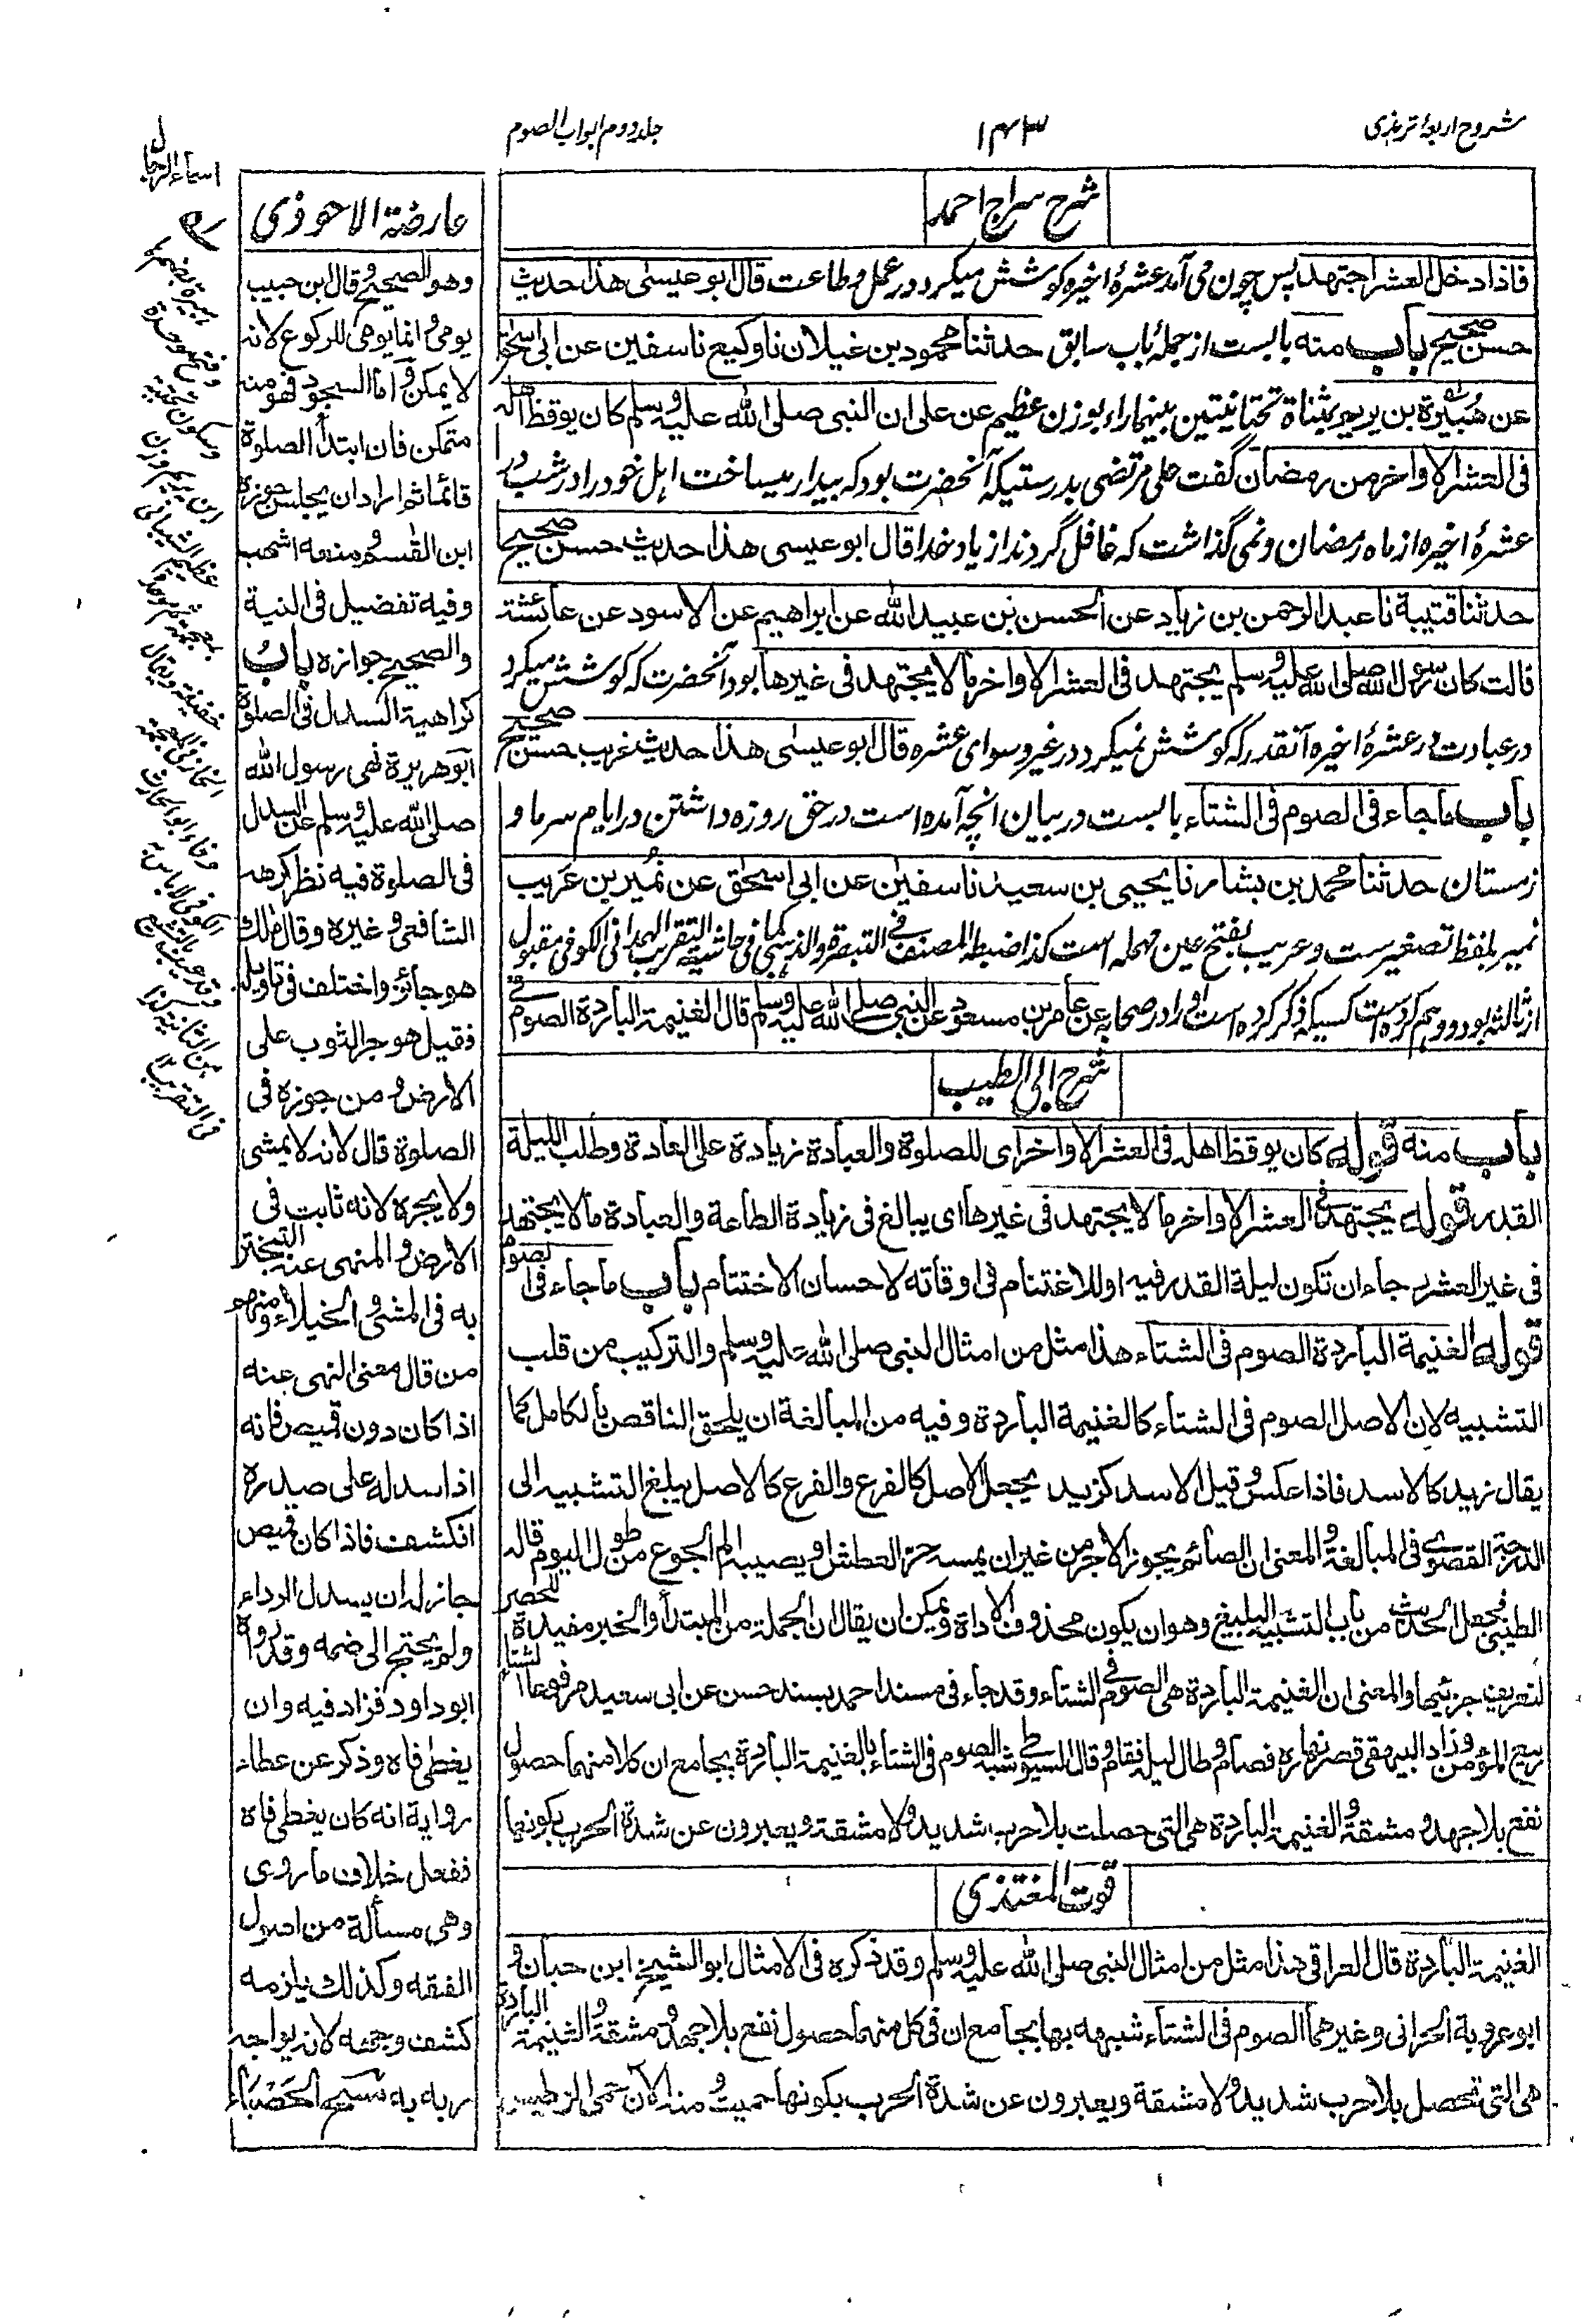 شروح اربعۂ ترمذی
۱۴۳
جلد دوم ابواب الصوم
اسماء الرجال
شرح سراج احمد
فاذا دخل العشر اجتهد پس چون می آمد عشرۂ اخیرہ کوشش میکرد در عمل و طاعت قال ابو عیسیٰ هذا حدیث
حسن صحیح باب منه بابست از جملۂ باب سابق حدثنا محمود بن غیلان نا وکیع نا سفین عن ابی اسحق
عن هُبَیْرَة بن یریم بمثناة تحتانیتین بینهما راء بوزن عظیم عن علی ان النبی صلی الله علیه وسلم کان یوقظ اهله
فی العشر الاواخر من رمضان گفت علی مرتضی بدرستیکہ آنحضرت بود کہ بیدار میساخت اہل خود را در شب در
عشرۂ اخیرہ از ماہ رمضان و نمی گذاشت کہ غافل گردند از یاد خدا قال ابو عیسی هذا حدیث حسن صحیح
حدثنا قتیبة نا عبد الرحمن بن زیاد عن الحسن بن عبید الله عن ابراهیم عن الاسود عن عائشة
قالت کان رسول الله صلی الله علیه وسلم یجتهد فی العشر الاواخر ما لا یجتهد فی غیرها بود آنحضرت کہ کوشش میکرد
در عبادت در عشرۂ اخیرہ آنقدر کہ کوشش نمیکرد در غیر و سوای عشرہ قال ابو عیسٰی هذا حدیث غریب حسن صحیح
باب ما جاء فی الصوم فی الشتاء بابست در بیان انچہ آمدہ است در حق روزہ داشتن در ایام سرما و
زمستان حدثنا محمد بن بشار نا یحیی بن سعید نا سفین عن ابی اسحٰق عن نُمیر بن عَریب
نمیر بلفظ تصغیرست و عریب بفتح عین مہملہ است کذا ضبطہ المصنف فی التبصرة والذهبی کما فی حاشیة التقریب الهمدانی الکوفی مقبول
از ثالثہ بود و وہم کردہ است کسیکہ ذکر کردہ است او را در صحابہ عن عامر بن مسعود عن النبی صلی الله علیه وسلم قال الغنیمة الباردة الصوم فی
شرح ابی الطیب
باب منه قوله کان یوقظ اهله فی العشر الاواخر ای للصلوة والعبادة زیادة علی العادة وطلب اللیلة
القدر قوله یجتهد فی العشر الاواخر ما لا یجتهد فی غیرها ای یبالغ فی زیادة الطاعة والعبادة ما لا یجتهد
فی غیر العشر رجاء ان تکون لیلة القدر فیه او للاغتنام فی اوقاته لاحسان الاختتام باب ما جاء فی الصوم
قوله الغنیمة الباردة الصوم فی الشتاء هذا مثل من امثال النبی صلی الله علیه وسلم والترکیب من قلب
التشبیه لان الاصل الصوم فی الشتاء کالغنیمة الباردة وفیه من المبالغة ان یلحق الناقص بالکامل کما
یقال زید کالاسد فاذا عکس وقیل الاسد کزید یجعل الاصل کالفرع والفرع کالاصل یبلغ التشبیه الی
الدرجة القصوی فی المبالغة والمعنی ان الصائم یحوز الاجر من غیر ان یمسه حر العطش او یصیبه الم الجوع من طول الیوم قاله
الطیبی فجعل الحدیث من باب التشبیه البلیغ وهو ان یکون محذوف الاداة ویمکن ان یقال ان الجملة من المبتدأ والخبر مفیدة للحصر
لتعریف جزئیها والمعنی ان الغنیمة الباردة هی الصوم فی الشتاء وقد جاء فی مسند احمد بسند حسن عن ابی سعید مرفوعا الشتاء
ربیع المؤمن وزاد البیهقی قصر نهاره فصام وطال لیله فقام وقال السیوطی شبه الصوم فی الشتاء بالغنیمة الباردة بجامع ان کلا منهما حصول
نفع بلا جهد ومشقة والغنیمة الباردة هی التی حصلت بلا حرب شدید ولا مشقة ویعبرون عن شدة الحرب بکونها
قوت المغتذی
الغنیمة الباردة قال العراقی هذا مثل من امثال النبی صلی الله علیه وسلم وقد ذکره فی الامثال ابو الشیخ ابن حبان و
ابو عروبة الحرانی وغیرهما الصوم فی الشتاء شبهه بها بجامع ان فی کل منهما حصول نفع بلا جهد ومشقة والغنیمة الباردة
هی التی تحصل بلا حرب شدید ولا مشقة ویعبرون عن شدة الحرب بکونها حمیت ومنه الآن حمی الوطیس
عارضة الاحوذی
وهو الصحیح وقال ابن حبیب
یومی وانما یومی للرکوع لانه
لا یمکن واما السجود فهو منه
متمکن فان ابتدأ الصلوة
قائما ثم اراد ان یجلس جوزه
ابن القٰسم ومنعه اشهب
وفیه تفضیل فی النیة
والصحیح جوازه باب
کراهیة السدل فی الصلوة
ابو هریرة نهی رسول الله
صلی الله علیه وسلم عن السدل
فی الصلوة فیه نظر کرهه
الشافعی وغیره وقال مٰلک
هو جائز واختلف فی تاویله
فقیل هو جر الثوب علی
الارض ومن جوزه فی
الصلوة قال لانه لا یمشی
ولا یجره لانه ثابت فی
الارض والمنهی عنه التبختر
به فی المشی والخیلاء ومنهم
من قال معنی النهی عنه
اذا کان دون قمیص فانه
اذا سدله علی صدره
انکشف فاذا کان قمیص
جاز له ان یسدل الرداء
ولم یحتج الی ضمه وقد رواه
ابو داود فزاد فیه وان
یغطی فاه وذکر عن عطاء
روایة انه کان یغطی فاه
ففعل خلاف ما روی
وهی مسألة من اصول
الفقه وکذلک یلزمه
کشف وجهه لانه یواجه
ربه به مسح الحَصْبَاء
هبیرة بضم
وفتح موحدة
وسکون تحتیة
ابن یریم وزن
عظیم الشیبانی
خفیفة ویقال
وفاء ابو الحارث
الکوفی لا باس به
وقد عیب بالتشیع
من الثانیة کذا
فی التقریب ۱۲